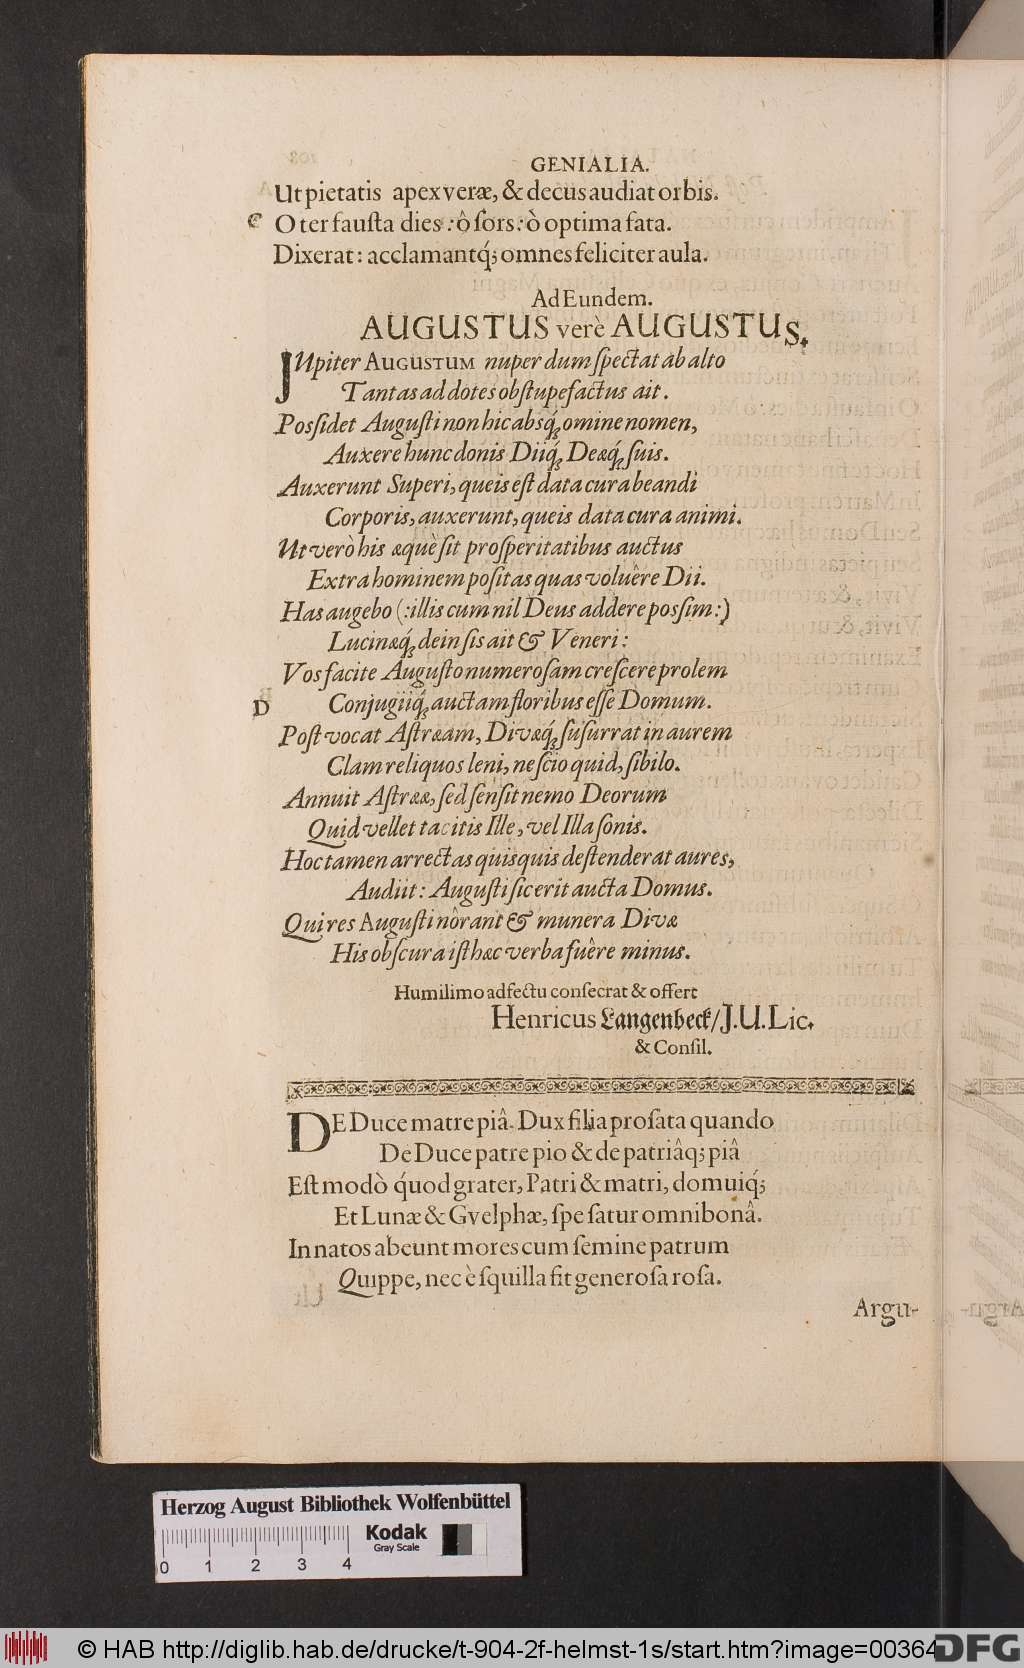 GENIALIA.
Ut pietatis apex veræ, & decus audiat orbis.
C O ter fauſta dies : ô ſors : ò optima fata.
Dixerat : acclamantq́; omnes feliciter aula.
Ad Eundem.
AUGUSTUS verè AUGUSTUS.
JUpiter AUGUSTUM nuper dum ſpectat ab alto
Tantas ad dotes obſtupefactus ait.
Posſidet Auguſti non hic absq́; omine nomen,
Auxere hunc donis Diiq́; Deæq́; ſuis.
Auxerunt Superi, queis eſt data cura beandi
Corporis, auxerunt, queis data cura animi.
Ut verò his æquè ſit proſperitatibus auctus
Extra hominem poſitas quas voluêre Dii.
Has augebo (: illis cum nil Deus addere posſim :)
Lucinæq́; dein ſis ait & Veneri :
Vos facite Auguſto numeroſam creſcere prolem
D Conjugiiq́; auctam floribus eſſe Domum.
Poſt vocat Aſtræam, Divæq́; ſuſurrat in aurem
Clam reliquos leni, neſcio quid, ſibilo.
Annuit Aſtræa, ſed ſenſit nemo Deorum
Quid vellet tacitis Ille, vel Illa ſonis.
Hoc tamen arrectas quisquis deſtenderat aures,
Audiit : Auguſti ſic erit aucta Domus.
Qui res Auguſti nôrant & munera Divæ
His obſcura iſthæc verba fuêre minus.
Humilimo adfectu conſecrat & offert
Henricus Langenbeck/ J. U. Lic.
& Conſil.
DE Duce matre piâ Dux filia proſata quando
De Duce patre pio & de patriâq; piâ
Eſt modò q́uod grater, Patri & matri, domuiq́;
Et Lunæ & Gvelphæ, ſpe ſatur omni bonâ.
In natos abeunt mores cum ſemine patrum
Quippe, nec è ſquilla fit generoſa roſa.
Argu-
Herzog August Bibliothek Wolfenbüttel
0 1 2 3 4
Kodak
Gray Scale
© HAB http://diglib.hab.de/drucke/t-904-2f-helmst-1s/start.htm?image=00364
DFG